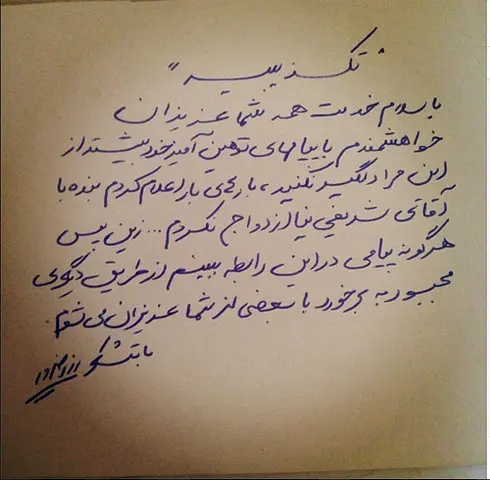 " تکذیبیه "
با سلام خدمت همه شما عزیزان
خواهشمندم با پیامهای توهین آمیز خود بیشتر از
این مرا دلگیر نکنید، بارها اعلام کردم بنده با
آقای شریفی نیا ازدواج نکردم... زین پس
هرگونه پیامی در این رابطه ببینم از طریق دیگری
مجبور به برخورد با بعضی از شما عزیزان می شوم
با تشکر